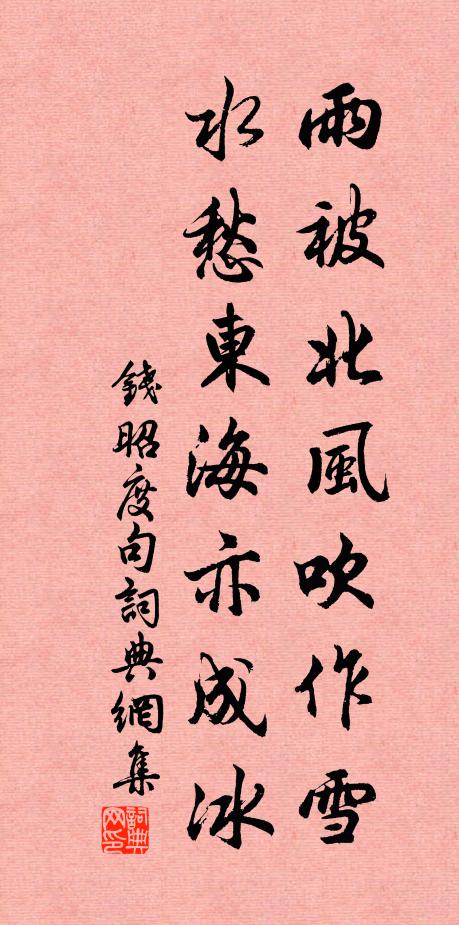 雨被北風吹作雪
水愁東海亦成冰
錢昭度句詞典網集
詞典網印